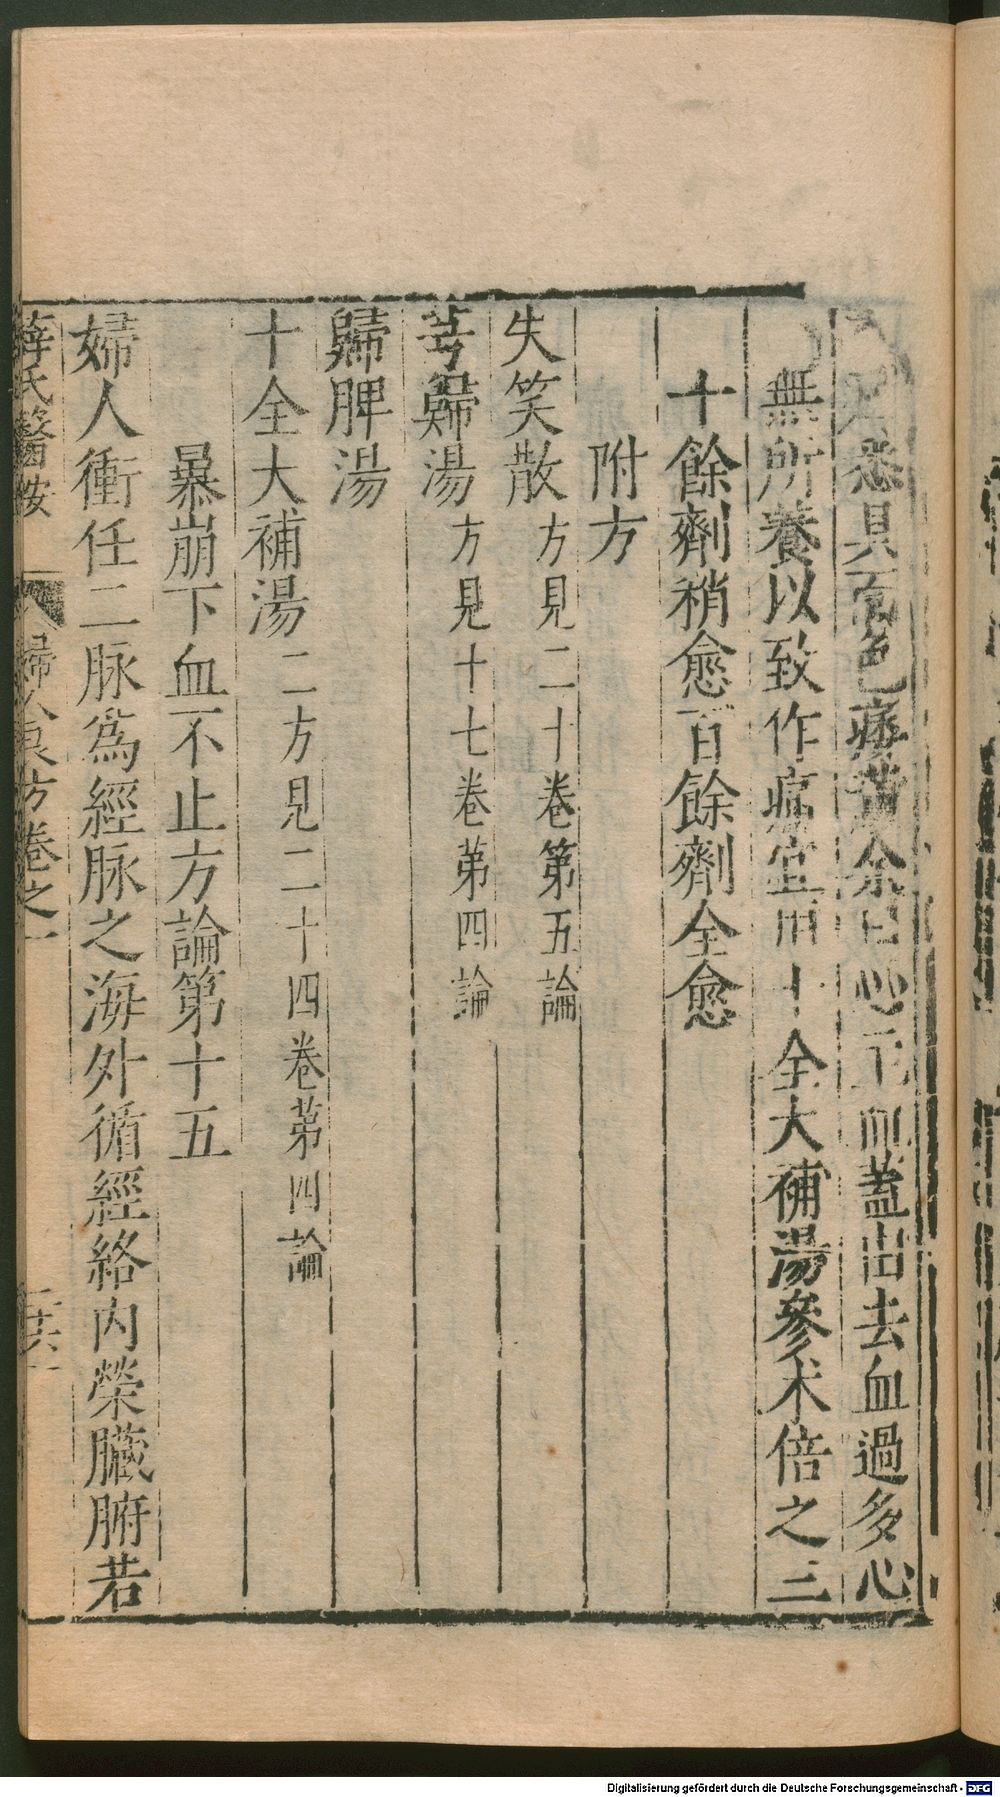 悉具面色痿黃余曰心主血蓋由去血過多心
無所養以致作痛宜用十全大補湯參术倍之三
十餘劑稍愈百餘劑全愈
附方
失笑散方見二十卷第五論
芎歸湯方見十七卷第四論
歸脾湯
十全大補湯二方見二十四卷第四論
暴崩下血不止方論第十五
婦人衝任二脉爲經脉之海外循經絡內榮臟腑若
薛氏醫按 婦人良方卷之一
Digitalisierung gefördert durch die Deutsche Forschungsgemeinschaft - DFG